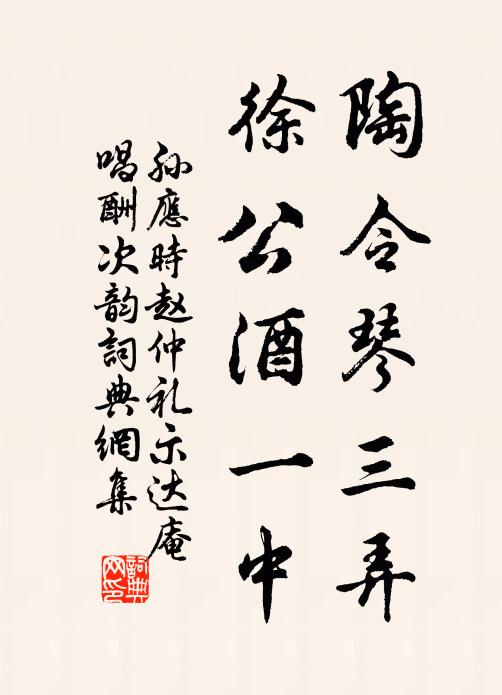 陶令琴三弄
徐公酒一中
孙應時赵仲礼示达庵
唱酬次韵詞典網集
詞典网印